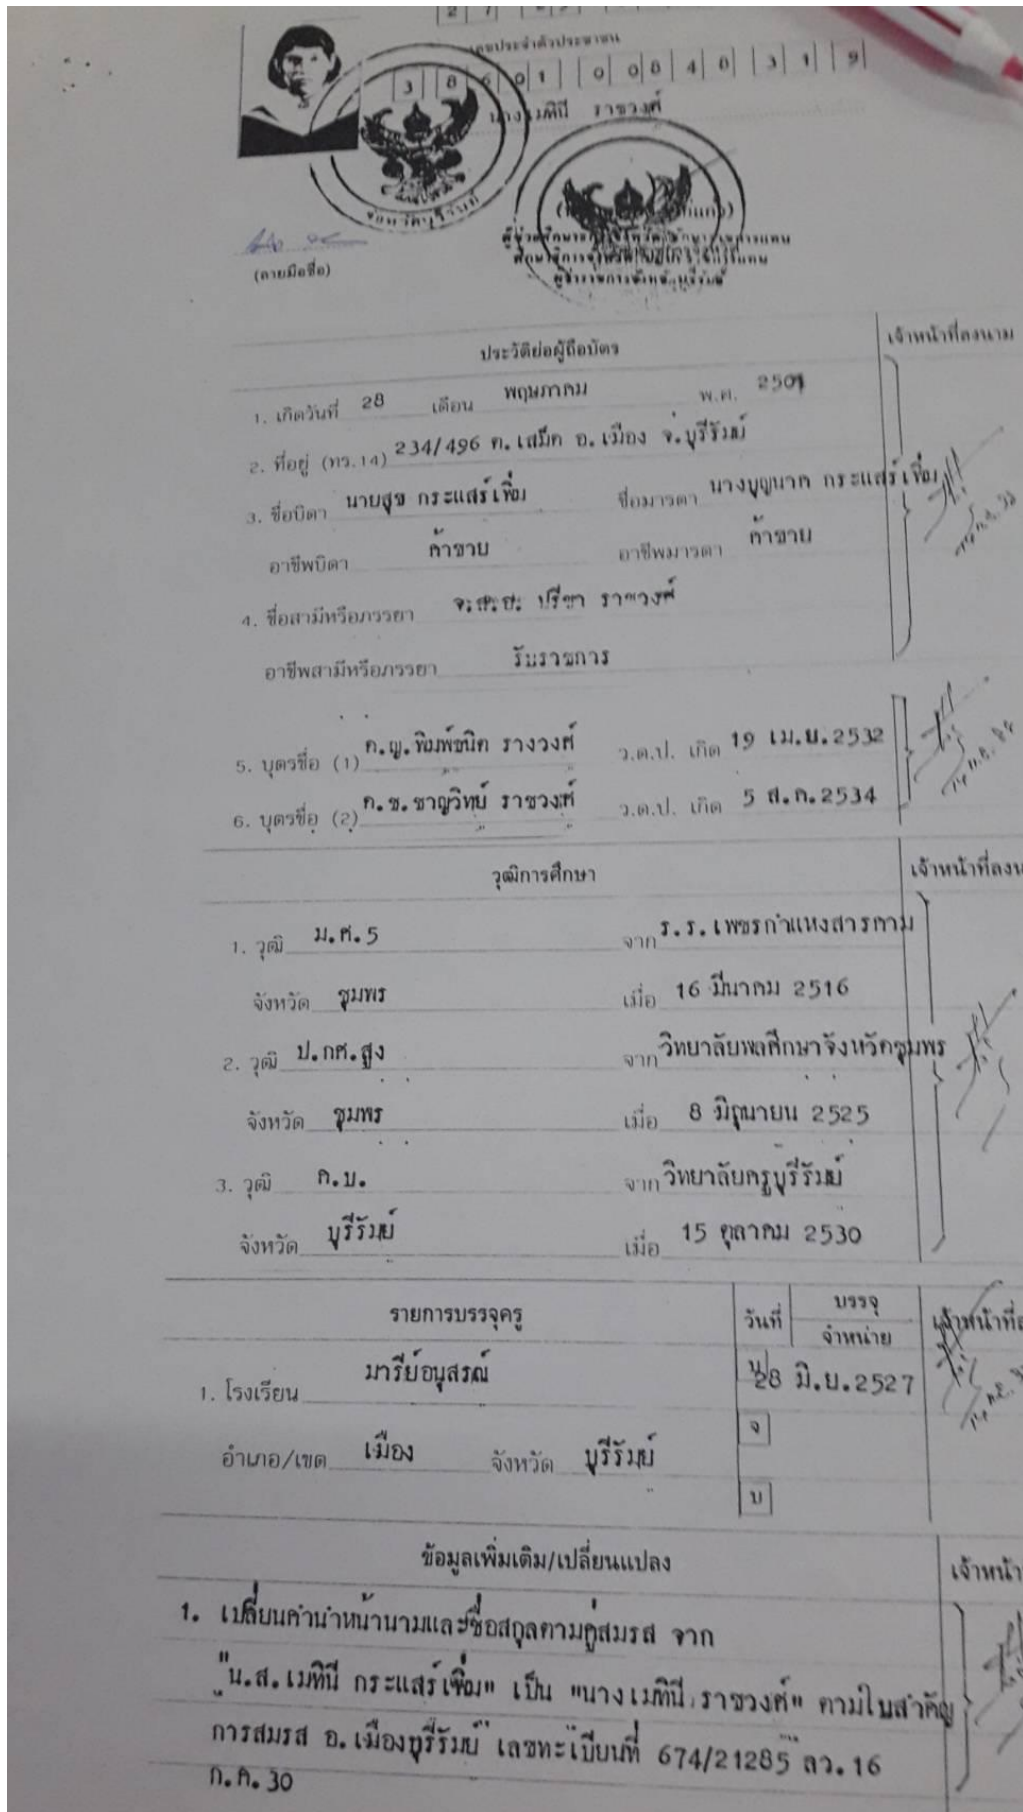 เลขประจำตัวประชาชน
3 8601 00848 31 9
นางเมทินี ราชวงศ์
จังหวัดบุรีรัมย์
(ลายมือชื่อ)
ผู้ว่าราชการจังหวัดบุรีรัมย์
ประวัติย่อผู้ถือบัตร เจ้าหน้าที่ลงนาม
1. เกิดวันที่ 28 เดือน พฤษภาคม พ.ศ. 2501
2. ที่อยู่ (ทร.14) 234/496 ต.เสม็ด อ.เมือง จ.บุรีรัมย์
3. ชื่อบิดา นายสุข กระแสร์เพิ่ม ชื่อมารดา นางบุญนาค กระแสร์เพิ่ม
อาชีพบิดา ค้าขาย อาชีพมารดา ค้าขาย
4. ชื่อสามีหรือภรรยา จ.ส.อ. ปรีชา ราชวงศ์
อาชีพสามีหรือภรรยา รับราชการ
5. บุตรชื่อ (1) ด.ญ.พิมพ์ชนิต รางวงศ์ ว.ด.ป. เกิด 19 เม.ย.2532
6. บุตรชื่อ (2) ด.ช.ชาญวิทย์ ราชวงศ์ ว.ด.ป. เกิด 5 ส.ค.2534
วุฒิการศึกษา เจ้าหน้าที่ลงน
1. วุฒิ ม.ศ.5 จาก ร.ร.เพชรกำแหงสารคาม
จังหวัด ชุมพร เมื่อ 16 มีนาคม 2516
2. วุฒิ ป.กศ.สูง จาก วิทยาลัยพลศึกษาจังหวัดชุมพร
จังหวัด ชุมพร เมื่อ 8 มิถุนายน 2525
3. วุฒิ ค.บ. จาก วิทยาลัยครูบุรีรัมย์
จังหวัด บุรีรัมย์ เมื่อ 15 ตุลาคม 2530
รายการบรรจุครู วันที่ บรรจุ เจ้าหน้าที่ล
จำหน่าย
1. โรงเรียน มารีย์อนุสรณ์ บ 28 มิ.ย.2527
จ
อำเภอ/เขต เมือง จังหวัด บุรีรัมย์
บ
ข้อมูลเพิ่มเติม/เปลี่ยนแปลง เจ้าหน้า
1. เปลี่ยนคำนำหน้านามและชื่อสกุลตามคู่สมรส จาก
"น.ส.เมทินี กระแสร์เพิ่ม" เป็น "นางเมทินี ราชวงศ์" ตามใบสำคัญ
การสมรส อ.เมืองบุรีรัมย์ เลขทะเบียนที่ 674/21285 ลว. 16
ก.ค.30